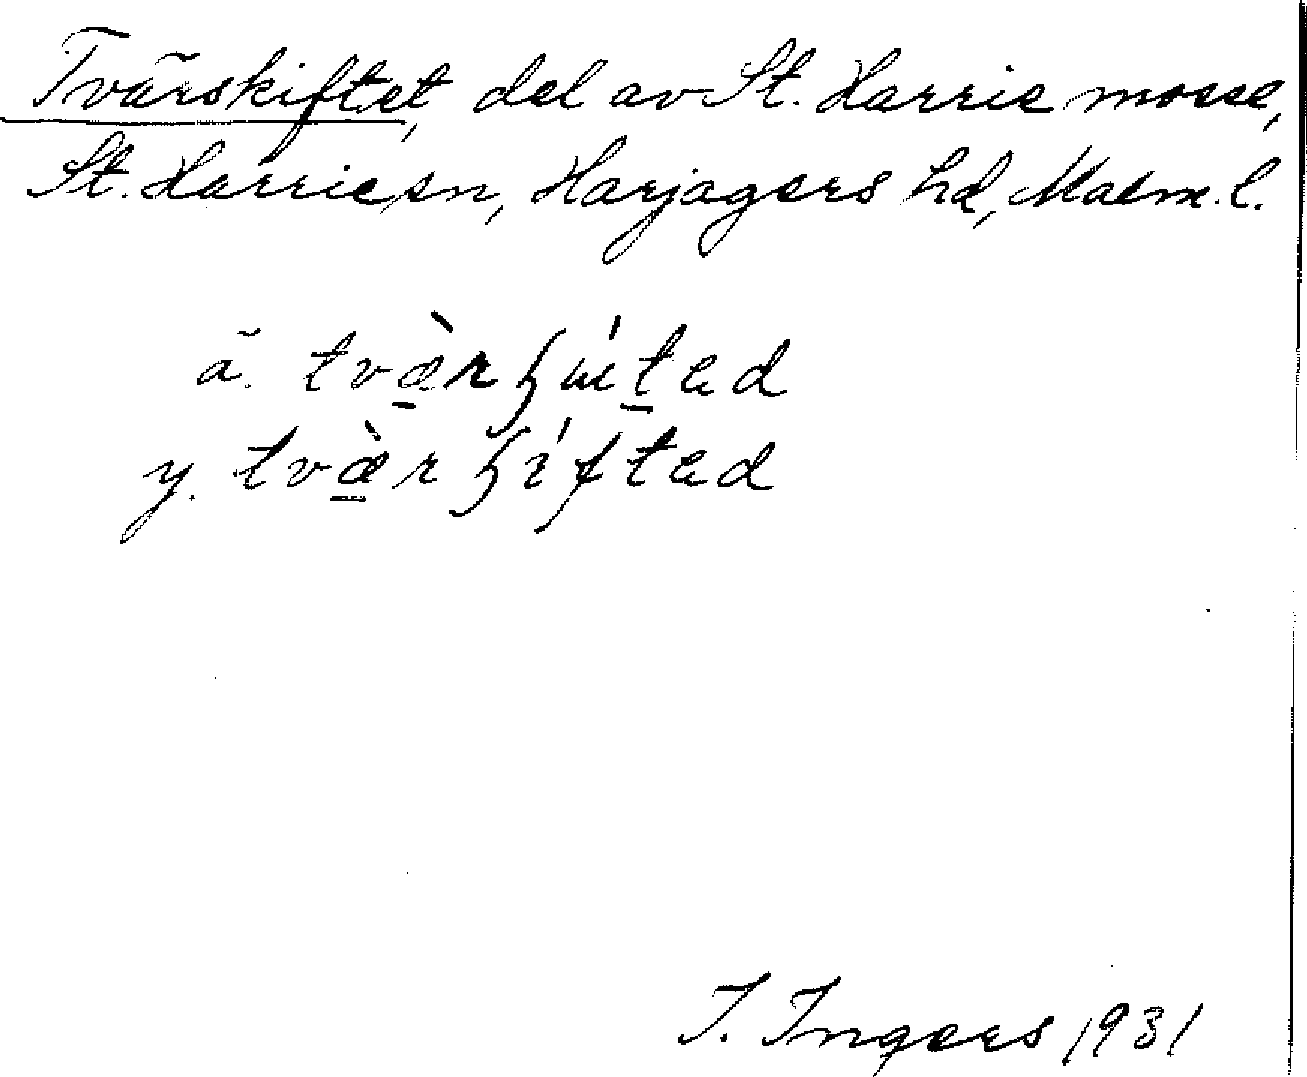 Tvärskiftet, del av St. Harrie mosse,
St. Harrie sn, Harjagers hd, Malm. l.
ä.
y.
I. Ingers 1931